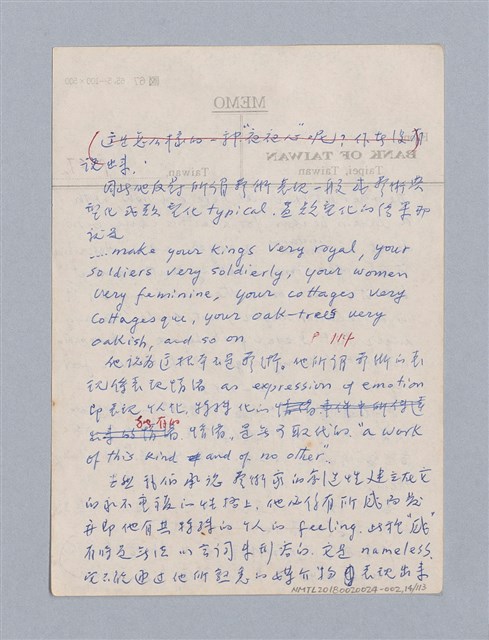 MEMO
BANK OF TAIWAN
Taipei, Taiwan
Taiwan
這是怎麼樣的一種"
說出來.
因此他反對所謂藝術表現一般
型化或類型化 typical. 類型化的結果那
就是
…make your kings very royal, your
soldiers very soldierly, your women
very feminine, your cottages very
cottagesque, your oak-trees very
oakish, and so on P 114
他認為這根本不是藝術。他所謂藝術的表
現係表現情緒 as expression of emotion
即表現個人化, 特殊化的
情緒, 是無可取代的. "a work
of this kind and of no other".
我們承認藝術家的創造性建立在它
的永不重複的性格上, 他必係有所感而發
亦即他有其特殊的個人的 feeling. 此種"感"
有時是無法以言詞來形容的. 它是 nameless.
它只能通過他所熟悉的媒介物表現出來
NMTL20180020024-002,14/113